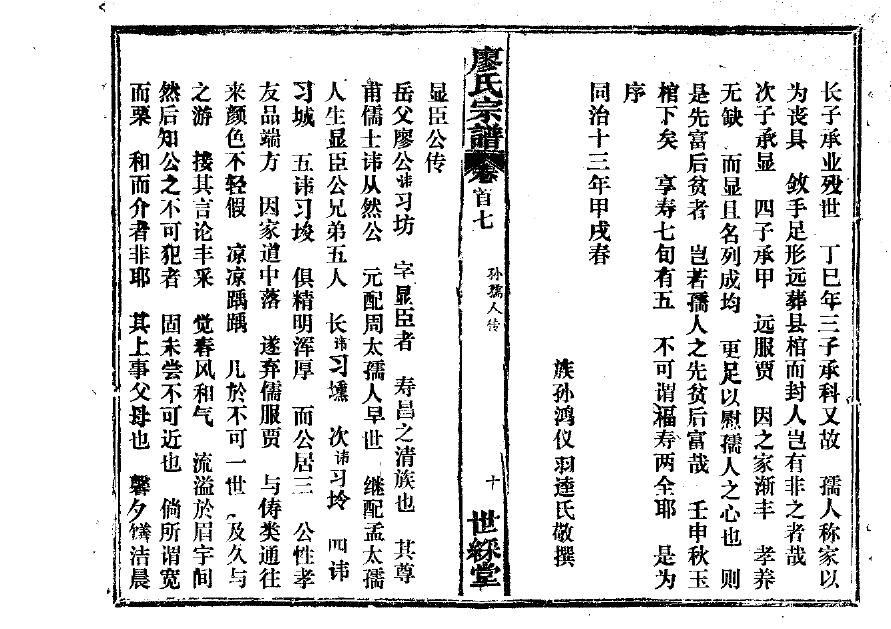 长子承业殁世 丁巳年三子承科又故 孺人称家以
为丧具 敛手足形远葬县棺而封人岂有非之者哉
次子承显 四子承甲 远服贾 因之家渐丰 孝养
无缺 而显且名列成均 更足以慰孺人之心也 则
是先富后贫者 岂若孺人之先贫后富哉 壬申秋玉
棺下矣 享寿七旬有五 不可谓福寿两全耶 是为
序
同治十三年甲戌春
族孙鸿仪羽逵氏敬撰
廖氏宗譜 卷首七 孙孺人传 十 世綵堂
显臣公传
岳父廖公讳习坊 字显臣者 寿昌之清族也 其尊
甫儒士讳从然公 元配周太孺人早世 继配孟太孺
人生显臣公兄弟五人 长讳习壎 次讳习坽 四讳
习城 五讳习埈 俱精明浑厚 而公居三 公性孝
友品端方 因家道中落 遂弃儒服贾 与俦类通往
来颜色不轻假 凉凉踽踽 几於不可一世 及久与
之游 接其言论丰采 觉春风和气 流溢於眉宇间
然后知公之不可犯者 固未尝不可近也 倘所谓宽
而栗 和而介者非耶 其上事父母也 馨夕馐洁晨